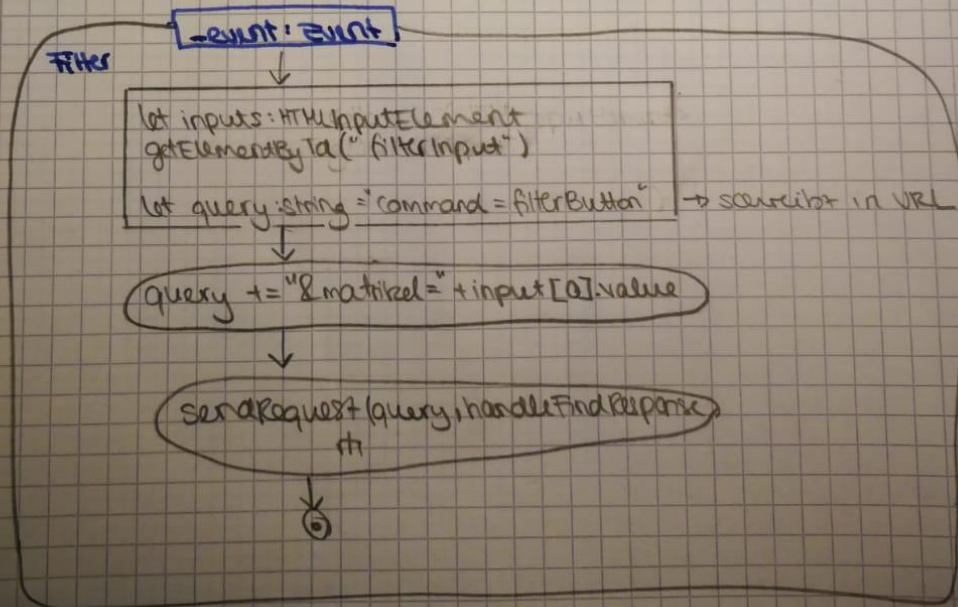 _event: Event
Filter
let inputs: HTMLInputElement
getElementById("filterInput")
let query:string = "command=filterButton" → schreibt in URL
query += "&matrikel=" + input[0].value
sendRequest(query, handleFindResponse